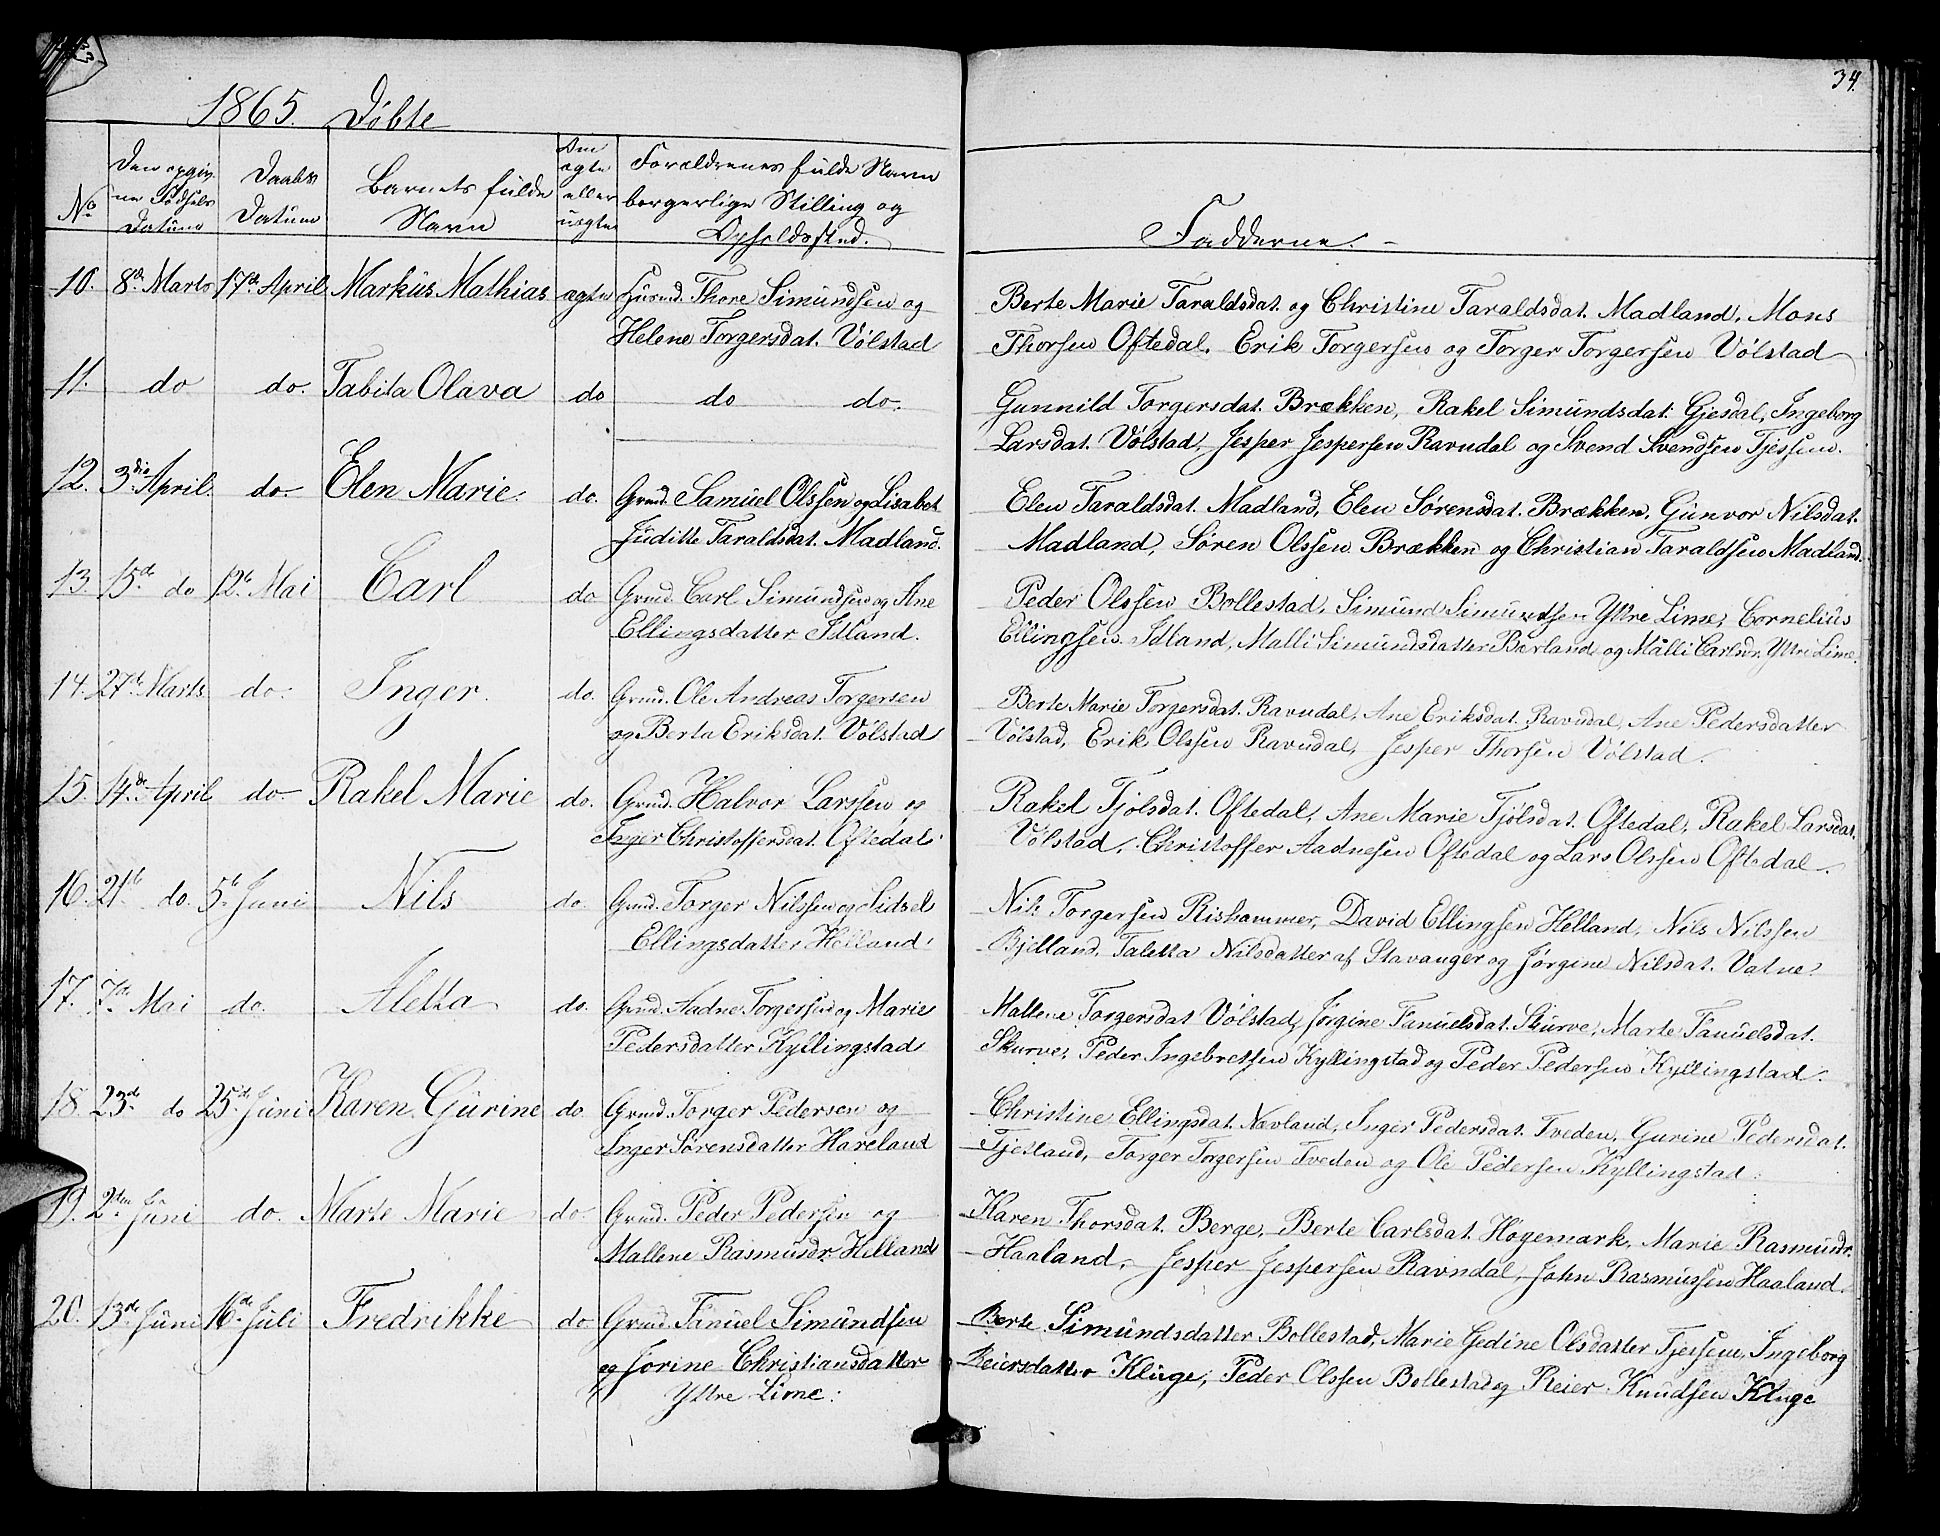 34.
1865. Döbte
No
Den opgiv-
ne Födsels
Datum
Daabs
Datum
Barnets fulde
Navn
Om
ægte
eller
uægte
Forældrenes fulde Navn
borgerlige Stilling og
Opholdssted.
Fadderne.
10. 8de Marts 17de April Markus Mathias ægte Huusmd. Thore Simundsen og
Helene Torgersdat. Völstad
Berte Marie Taraldsdat. og Christine Taraldsdat. Madland, Mons
Thorsen Oftedal. Erik Torgersen og Torger Torgersen Völstad
11. do do. Tabita Olava do do do.
Gunnild Torgersdat. Brækken, Rakel Simundsdat. Gjesdal, Ingeborg
Larsdat. Völstad, Jesper Jespersen Ravndal og Svend Svendsen Tjessem.
12. 3die April. do. Elen Marie. do. Grmd. Samuel Olssen og Lisabet
Juditte Taraldsdat. Madland.
Elen Taraldsdat. Madland, Elen Sörensdat. Brækken, Gunvor Nilsdat.
Madland, Sören Olssen Brækken og Christian Taraldsen Madland.
13. 15de do 12te Mai Carl do Grmd. Carl Simundsen og Ane
Ellingsdatter Idland.
Peder Olssen Bollestad, Simund Simundsen Yttre Lime, Cornelius
Ellingsen Idland, Malli Simundsdatter Bærland og Malli Carlsdr. Yttre Lime.
14. 27de Marts do. Inger. do. Grmd. Ole Andreas Torgersen
og Berta Eriksdat. Völstad
Berte Marie Torgersdat. Ravndal, Ane Eriksdat. Ravndal, Ane Pedersdatter
Völstad, Erik Olssen Ravndal, Jesper Thorsen Völstad.
15. 14de April do. Rakel Marie do. Grmd. Halvor Larssen og
Inger Christoffersdat. Oftedal.
Rakel Tjölsdat. Oftedal, Ane Marie Tjölsdat. Oftedal, Rakel Larsdat.
Völstad, Christoffer Aadnesen Oftedal og Lars Olssen Oftedal.
16. 21de do. 5te Juni Nils do. Grmd. Torger Nilssen og Sidsel
Ellingsdatter Helland.
Nils Torgersen Rishammer, David Ellingsen Helland, Nils Nilssen
Bjelland, Taletta Nilsdatter af Stavanger og Jörgine Nilsdat. Vatne.
17. 7de Mai do. Aletta do. Grmd. Aadne Torgersen og Marie
Pedersdatter Kyllingstad
Mallene Torgersdat Völstad, Jörgine Fanuelsdat. Skurve, Marte Fanuelsdat.
Skurve, Peder Ingebretsen Kyllingstad og Peder Pedersen Kyllingstad.
18. 23de do 25de Juni Karen Gurine do. Grmd. Torger Pedersen og
Inger Sörensdatter Haveland
Christine Ellingsdat. Nævland, Inger Pedersdat. Tveden, Gurine Pedersdat.
Fjetland, Torger Torgersen Tveden og Ole Pedersen Kyllingstad.
19. 2den Juni do. Marte Marie do. Grmd. Peder Pedersen og
Mallene Rasmusdr. Helland
Karen Thorsdat. Berge, Berte Carlsdat. Høgemark, Marie Rasmusdr.
Haaland, Jesper Jespersen Ravndal, John Rasmussen Haaland.
20. 13de Juni 16de Juli Fredrikke do Grmd. Fanuel Simundsen
og Jorine Christiansdatter
Yttre Lime.
Berte Simundsdatter Bollestad, Marie Gedine Olsdatter Tjessem, Ingeborg
Reiersdatter Kluge, Peder Olssen Bollestad og Reier Knudsen Kluge